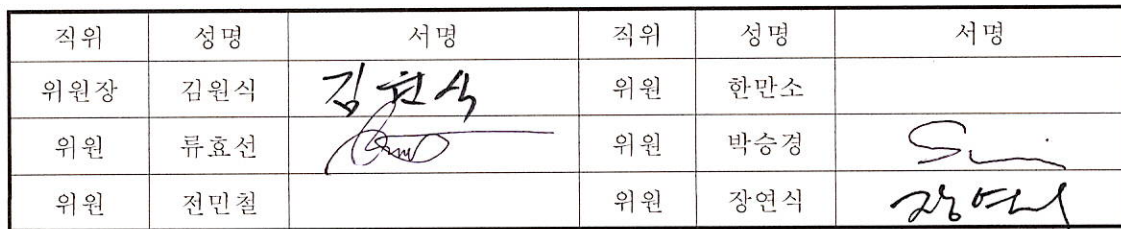 직위 성명 서명 직위 성명 서명
위원장 김원식 김원식 위원 한만소
위원 류효선 위원 박승경
위원 전민철 위원 장연식 장연식